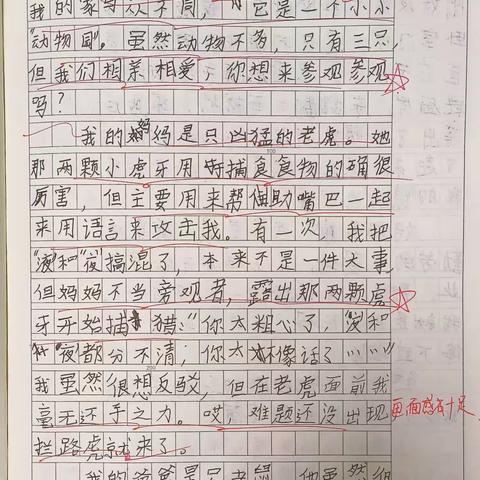 我的家与众不同，它是一个小小
"动物园"。虽然动物不多，只有三只，
但我们相亲相爱，你想来参观参观
吗？
我的妈妈是只凶猛的老虎。她
那两颗小虎牙用来捕食食物的确很
厉害，但主要用来帮助嘴巴一起
来用语言来攻击我。有一次，我把
"液"和"夜"搞混了，本来不是一件大事，
但妈妈不当旁观者，露出那两颗虎
牙开始捕猎："你太粗心了，"液"和
"夜"都分不清；你太不像话了……"
我虽然很想反驳，但在老虎面前我
毫无还手之力。哎，难题还没出现
画面感十足
拦路虎就来了。
我的爸爸是只老鼠。他虽然很